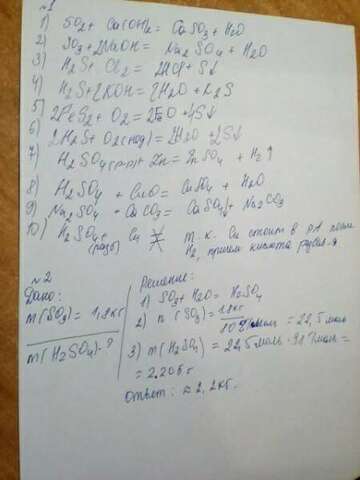 №1
1) SO₂ + Ca(OH)₂ = CaSO₃ + H₂O
2) SO₃ + 2NaOH = Na₂SO₄ + H₂O
3) H₂S + Cl₂ = 2HCl + S↓
4) H₂S + 2KOH = 2H₂O + K₂S
5) 2FeS₂ + O₂ = 2FeO + 4S↓
6) 2H₂S + O₂(нед) = 2H₂O + 2S↓
7) H₂SO₄(р-р) + Zn = ZnSO₄ + H₂↑
8) H₂SO₄ + CuO = CuSO₄ + H₂O
9) Na₂SO₄ + CaCO₃ = CaSO₄↓ + Na₂CO₃
10) H₂SO₄ + Cu ≠ т.к. Cu стоит в после
(разб) H₂, причем кислота
№2
Дано:
m(SO₃) = 1,8 кг
m(H₂SO₄) - ?
Решение:
1) SO₃ + H₂O = H₂SO₄
2) n(SO₃) = = 22,5 моль
3) m(H₂SO₄) = 22,5 моль · =
= 2.205г
Ответ: ≈ 2,2кг.